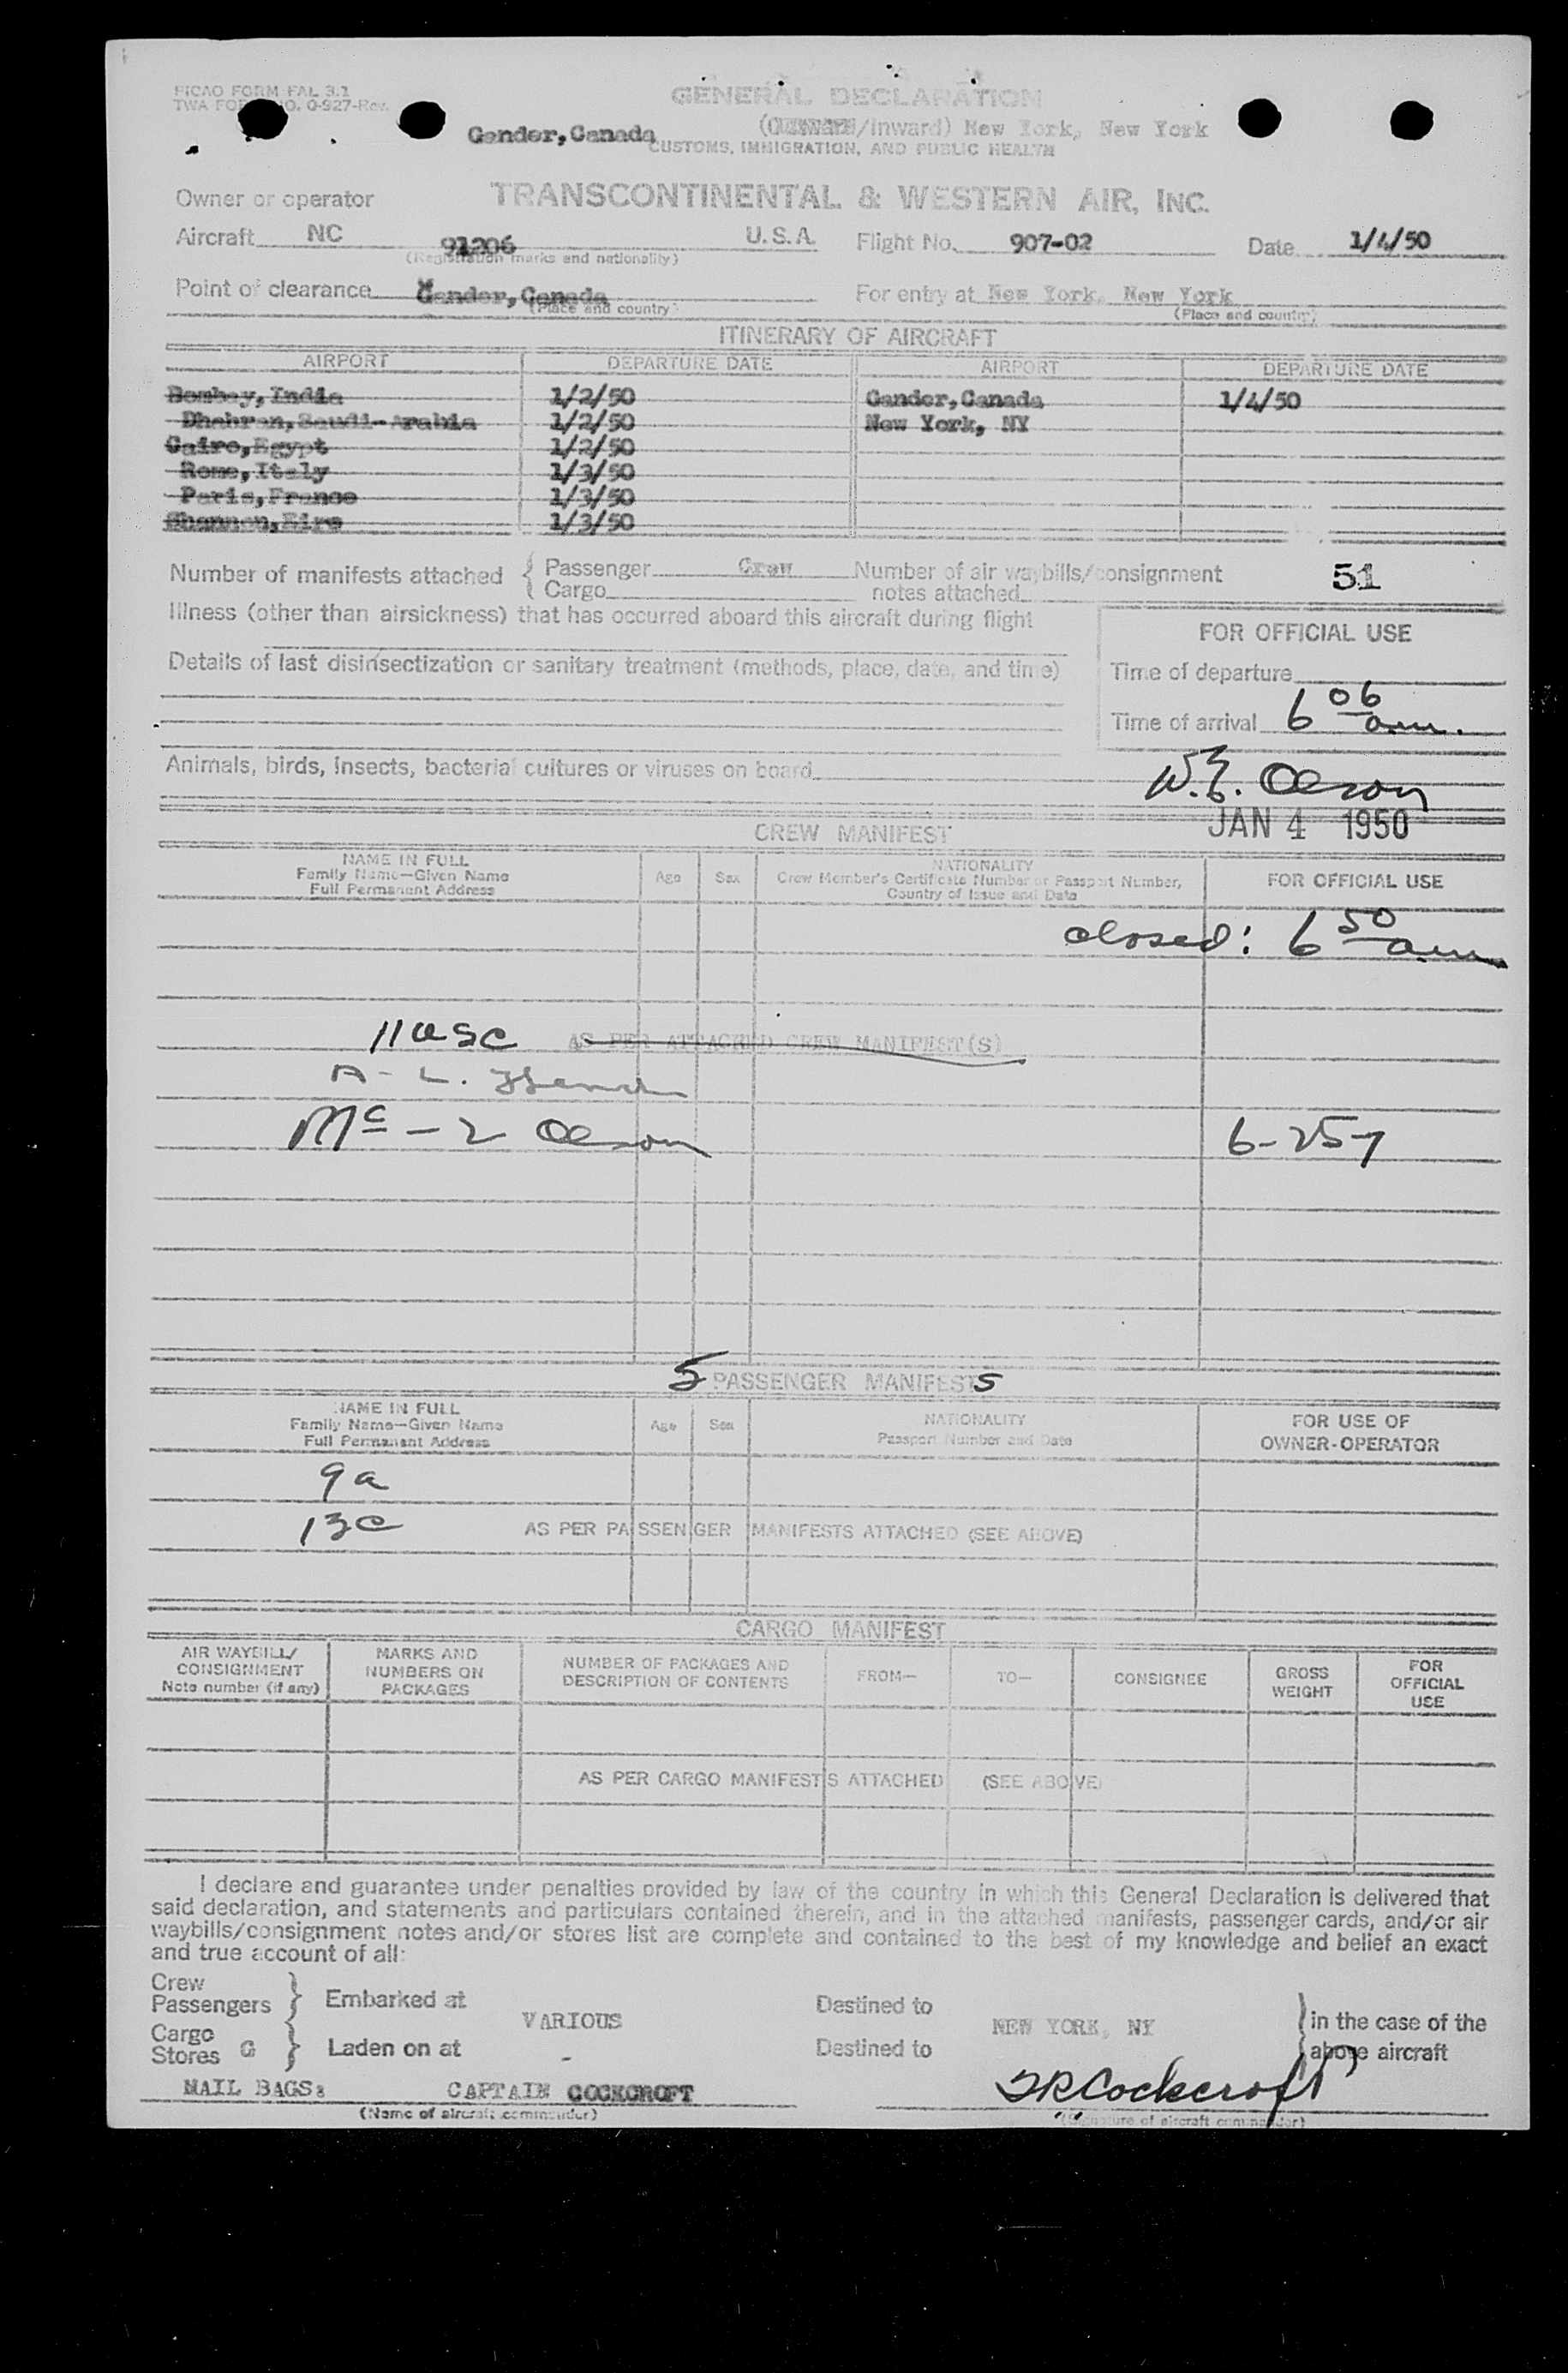 PICAO FORM FAL 3.1
TWA FORM NO. O-927-Rev.
GENERAL DECLARATION
(Outward/Inward) New York, New York
Gander, Canada
CUSTOMS, IMMIGRATION, AND PUBLIC HEALTH
Owner or operator TRANSCONTINENTAL & WESTERN AIR, INC.
Aircraft NC 91206 U.S.A. Flight No. 907-02 Date 1/4/50
(Registration marks and nationality)
Point of clearance Gander, Canada For entry at New York, New York
(Place and country) (Place and country)
ITINERARY OF AIRCRAFT
AIRPORT DEPARTURE DATE AIRPORT DEPARTURE DATE
Bombay, India 1/2/50 Gander, Canada 1/4/50
Dhahran, Saudi-Arabia 1/2/50 New York, NY
Cairo, Egypt 1/2/50
Rome, Italy 1/3/50
Paris, France 1/3/50
Shannon, Eire 1/3/50
Number of manifests attached { Passenger Crew Number of air waybills/consignment 51
Cargo notes attached
Illness (other than airsickness) that has occurred aboard this aircraft during flight
FOR OFFICIAL USE
Details of last disinsectization or sanitary treatment (methods, place, date, and time)
Time of departure
Time of arrival 6 06 am.
Animals, birds, insects, bacterial cultures or viruses on board
W.E. Olson
JAN 4 1950
CREW MANIFEST
NAME IN FULL
Family Name—Given Name
Full Permanent Address
Age Sex
NATIONALITY
Crew Member's Certificate Number or Passport Number,
Country of Issue and Date
FOR OFFICIAL USE
closed: 6 50 am
11 usc AS PER ATTACHED CREW MANIFEST(S)
A - L.
Mc - 2 Olson 6-257
5 PASSENGER MANIFESTS
NAME IN FULL
Family Name—Given Name
Full Permanent Address
Age Sex
NATIONALITY
Passport Number and Date
FOR USE OF
OWNER-OPERATOR
9a
13c AS PER PASSENGER MANIFESTS ATTACHED (SEE ABOVE)
CARGO MANIFEST
AIR WAYBILL/
CONSIGNMENT
Note number (if any)
MARKS AND
NUMBERS ON
PACKAGES
NUMBER OF PACKAGES AND
DESCRIPTION OF CONTENTS
FROM—
TO—
CONSIGNEE
GROSS
WEIGHT
FOR
OFFICIAL
USE
AS PER CARGO MANIFESTS ATTACHED (SEE ABOVE)
I declare and guarantee under penalties provided by law of the country in which this General Declaration is delivered that
said declaration, and statements and particulars contained therein, and in the attached manifests, passenger cards, and/or air
waybills/consignment notes and/or stores list are complete and contained to the best of my knowledge and belief an exact
and true account of all:
Crew
Passengers } Embarked at VARIOUS Destined to NEW YORK, NY } in the case of the
Cargo
Stores G } Laden on at - Destined to above aircraft
MAIL BAGS: CAPTAIN COCKCROFT SRCockcroft
(Name of aircraft commander) (Signature of aircraft commander)